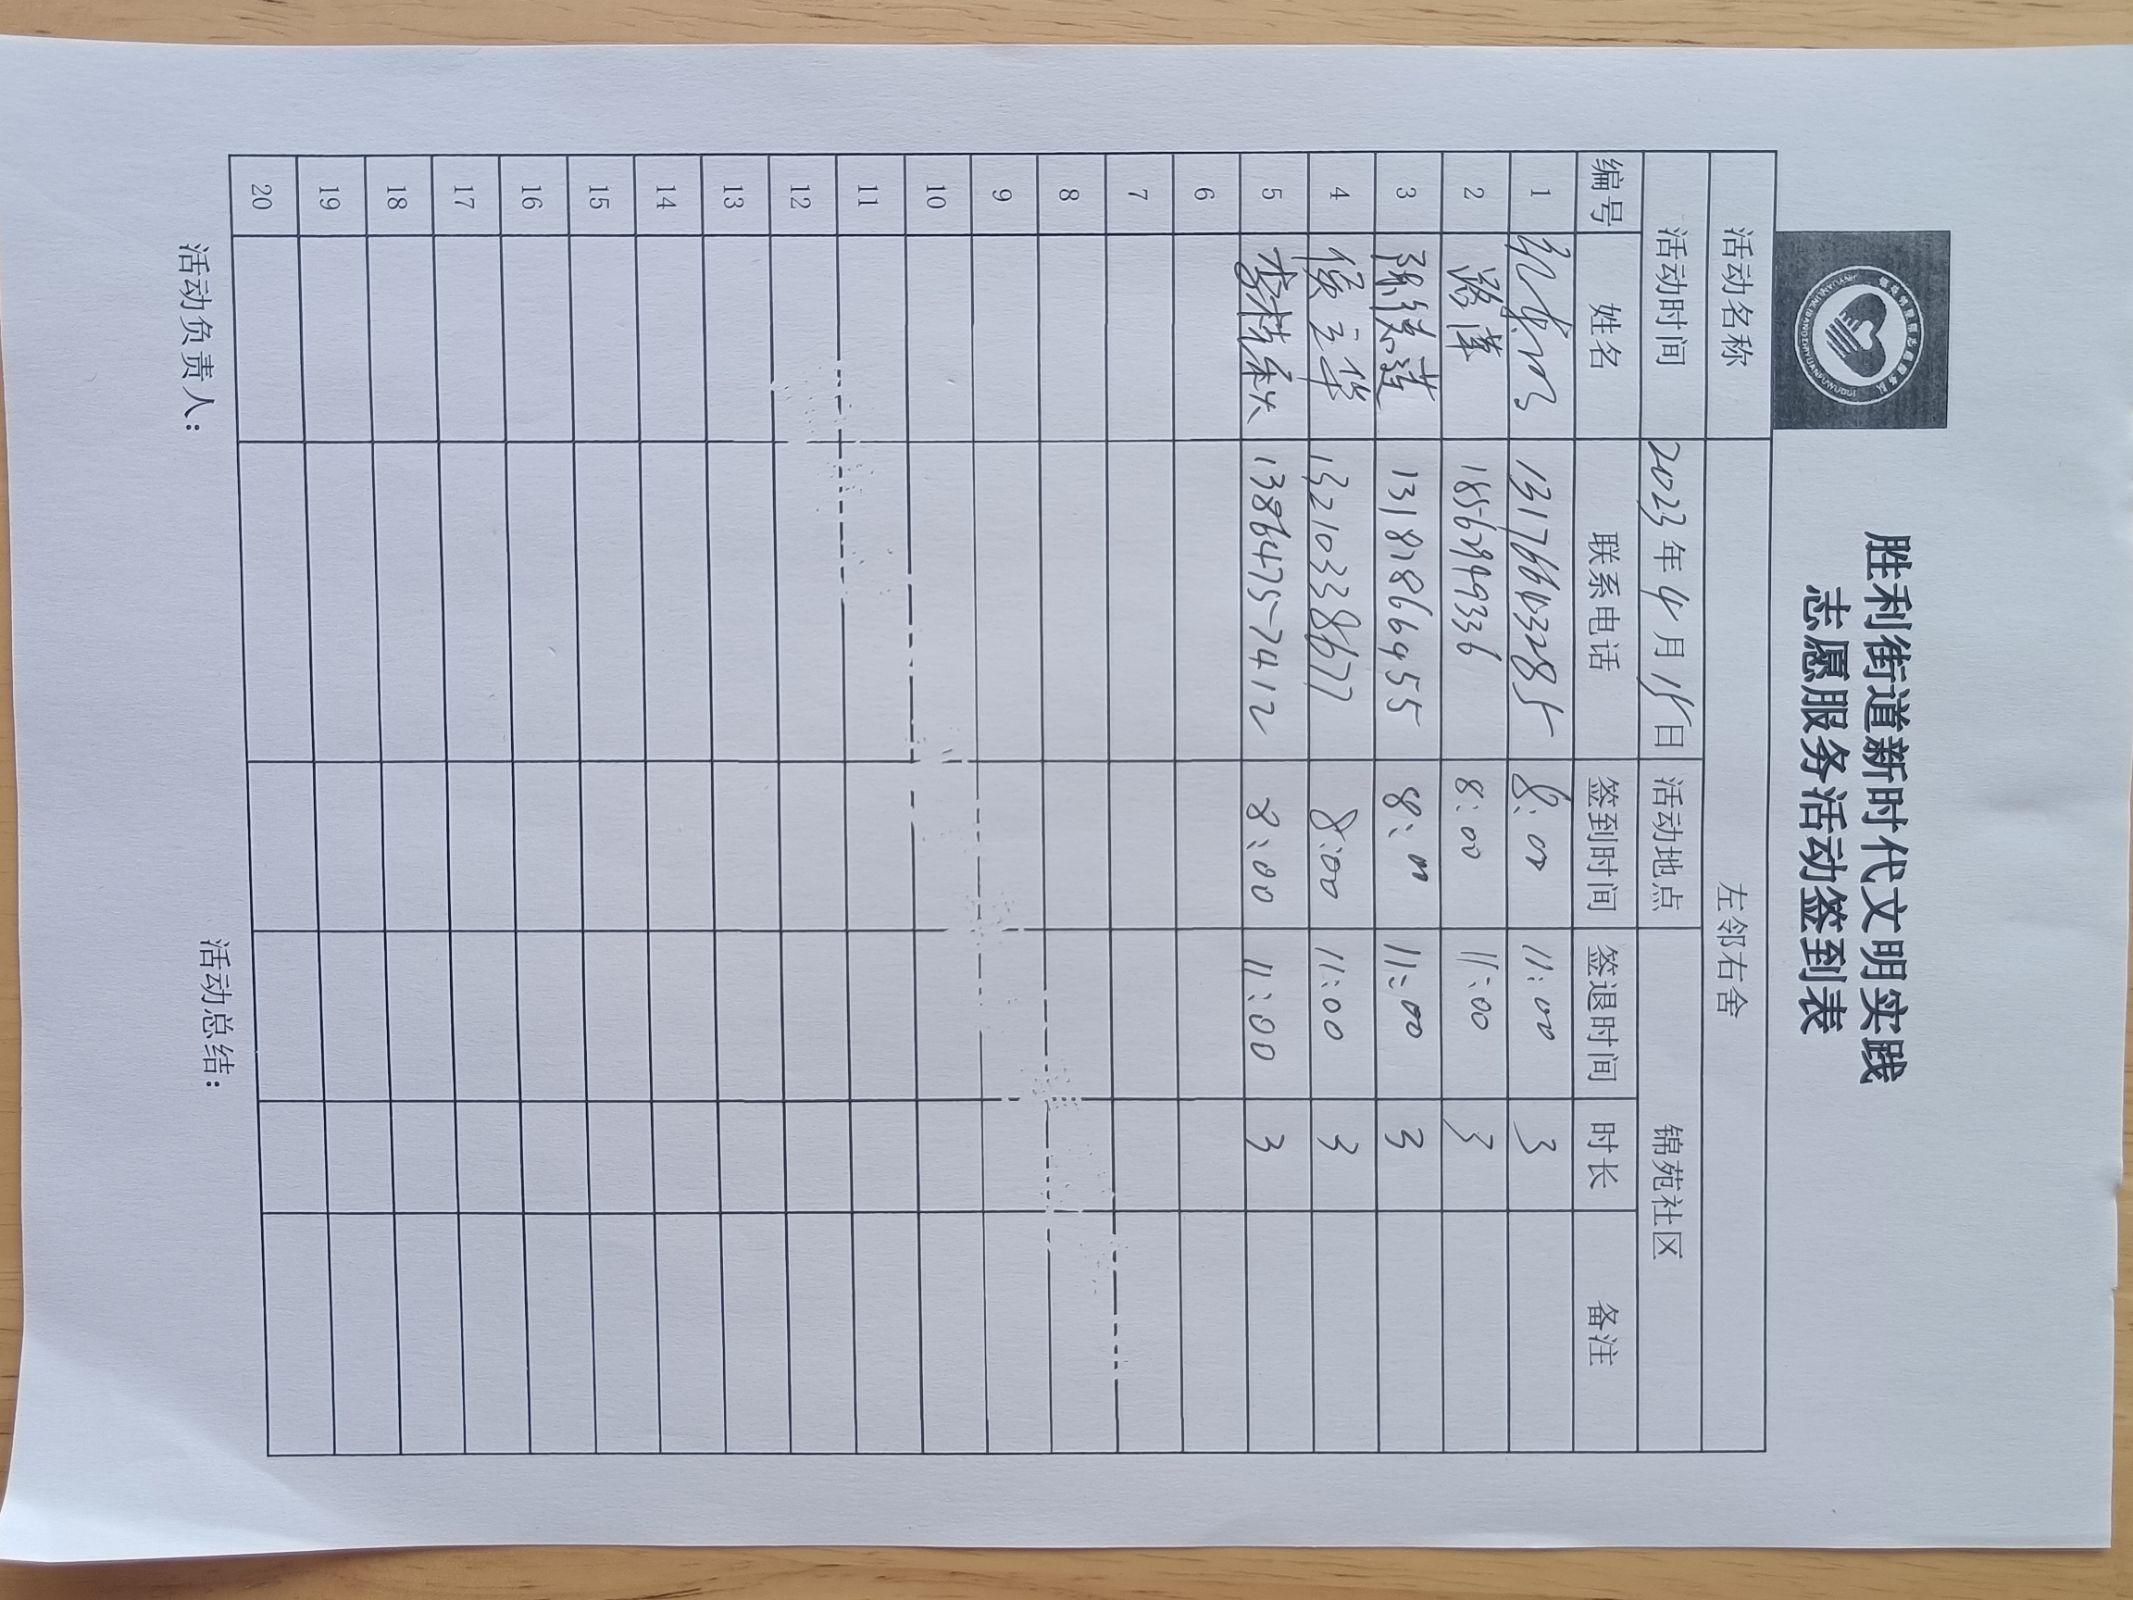 胜利街道新时代文明实践
志愿服务活动签到表
活动名称 左邻右舍
活动时间 2023年4月15日 活动地点 锦苑社区
编号 姓名 联系电话 签到时间 签退时间 时长 备注
1 8:00 11:00 3
2 路萍 18562999336 8:00 11:00 3
3 13181866955 8:00 11:00 3
4 侯立华 13210338677 8:00 11:00 3
5 李桂秋 13864757412 8:00 11:00 3
6
7
8
9
10
11
12
13
14
15
16
17
18
19
20
活动负责人： 活动总结：